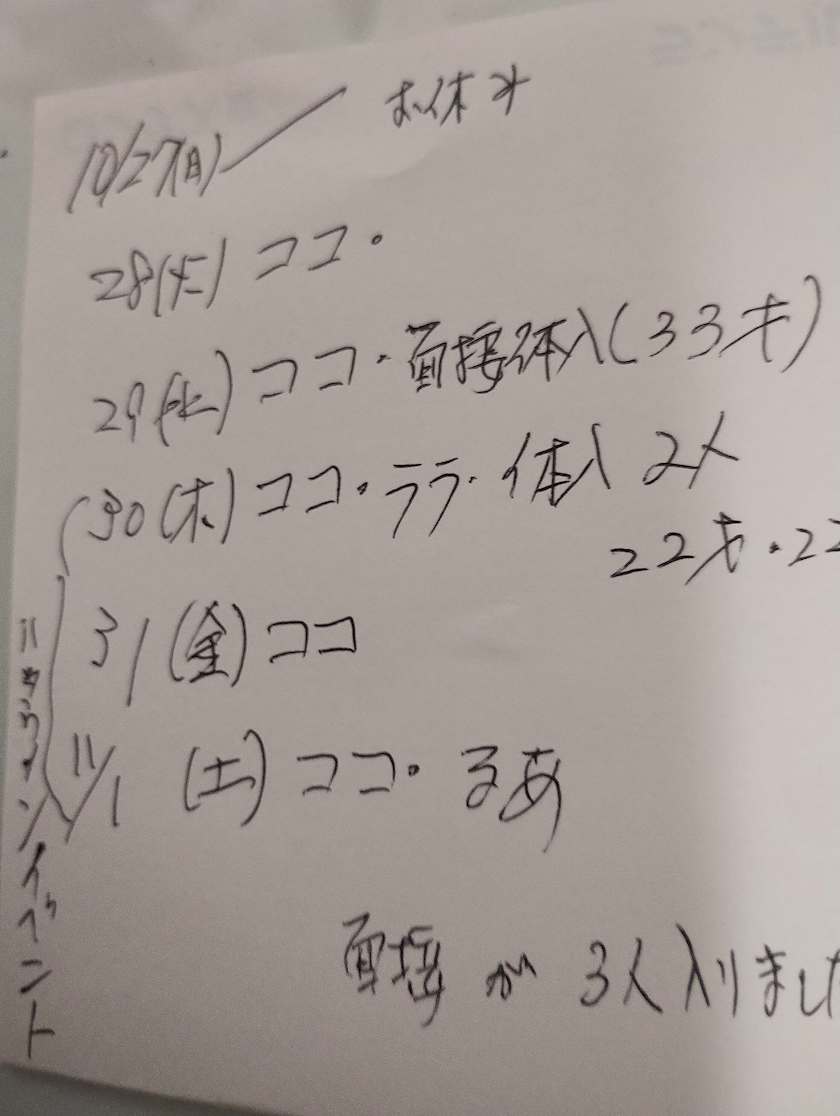 10/27(月) お休み
28(火) ココ・
29(水) ココ・面接体入(33才)
30(木) ココ・ララ・体入 2人
22才・22
31(金) ココ
11/1 (土) ココ・るあ
ハロウィンイベント
面接が 3人入りました